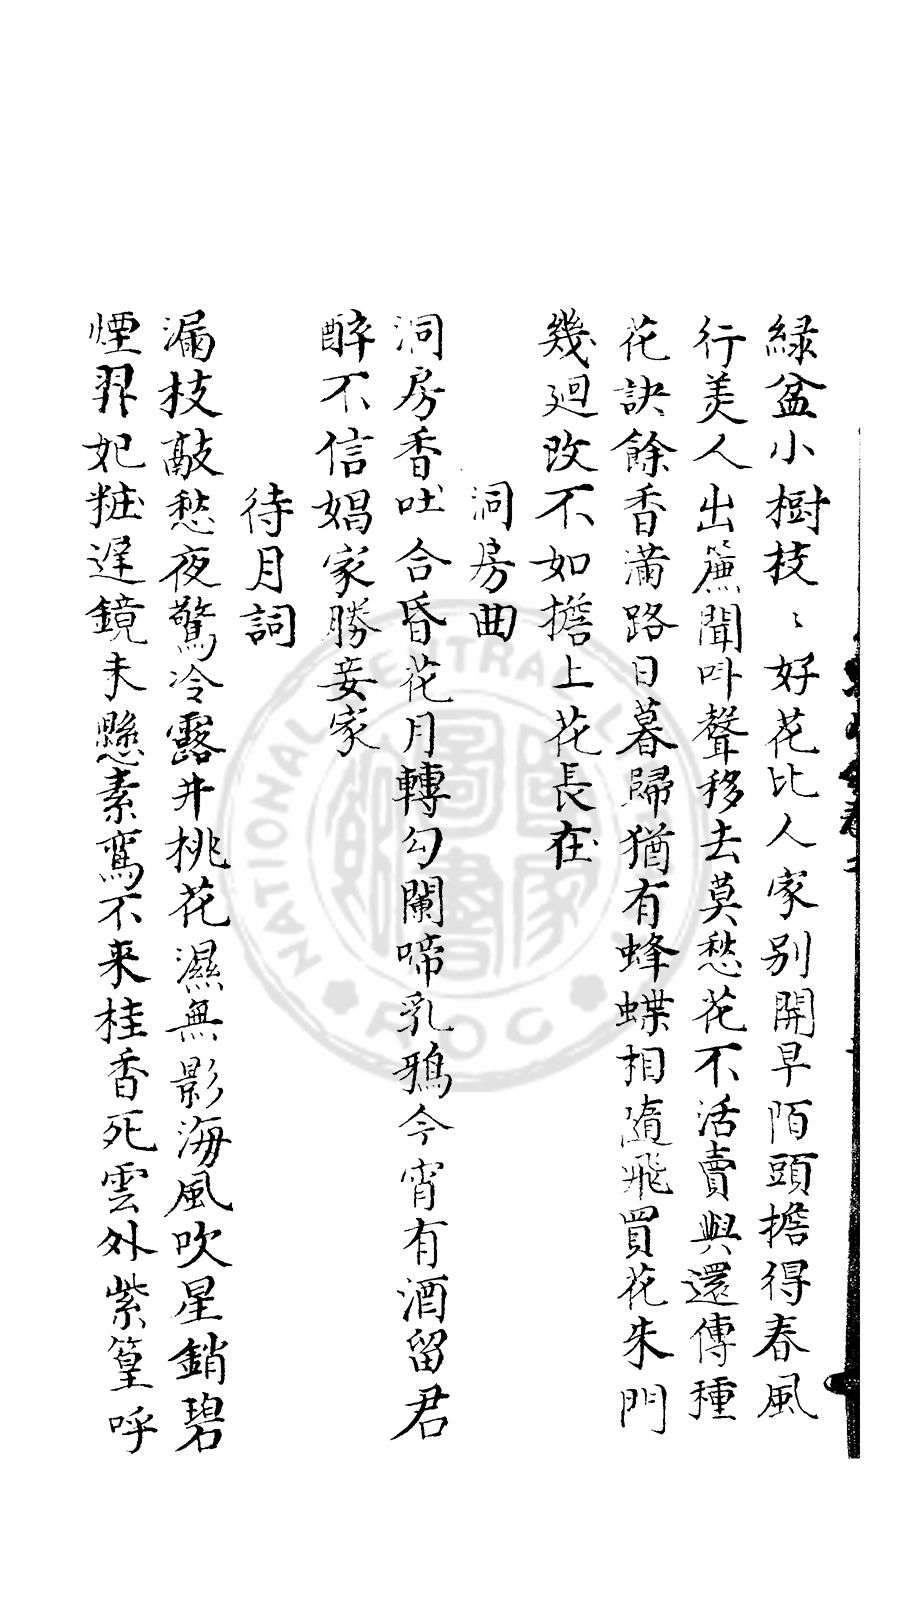 緑盆小樹枝〻好花比人家别開早陌頭擔得春風
行美人出簾聞叫聲移去莫愁花不活賣與還傳種
花訣餘香滿路日暮歸猶有蜂蝶相隨飛買花朱門
幾廻改不如擔上花長在
洞房曲
洞房香吐合昏花月轉勾闌啼乳鴉今宵有酒留君
醉不信娼家勝妾家
待月詞
漏枝敲愁夜驚冷露井桃花濕無影海風吹星銷碧
煙羿妃粧遲鏡未懸素鸞不来桂香死雲外紫篁呼
NATIONAL CENTRAL LIBRARY
R.O.C.
國家圖書館